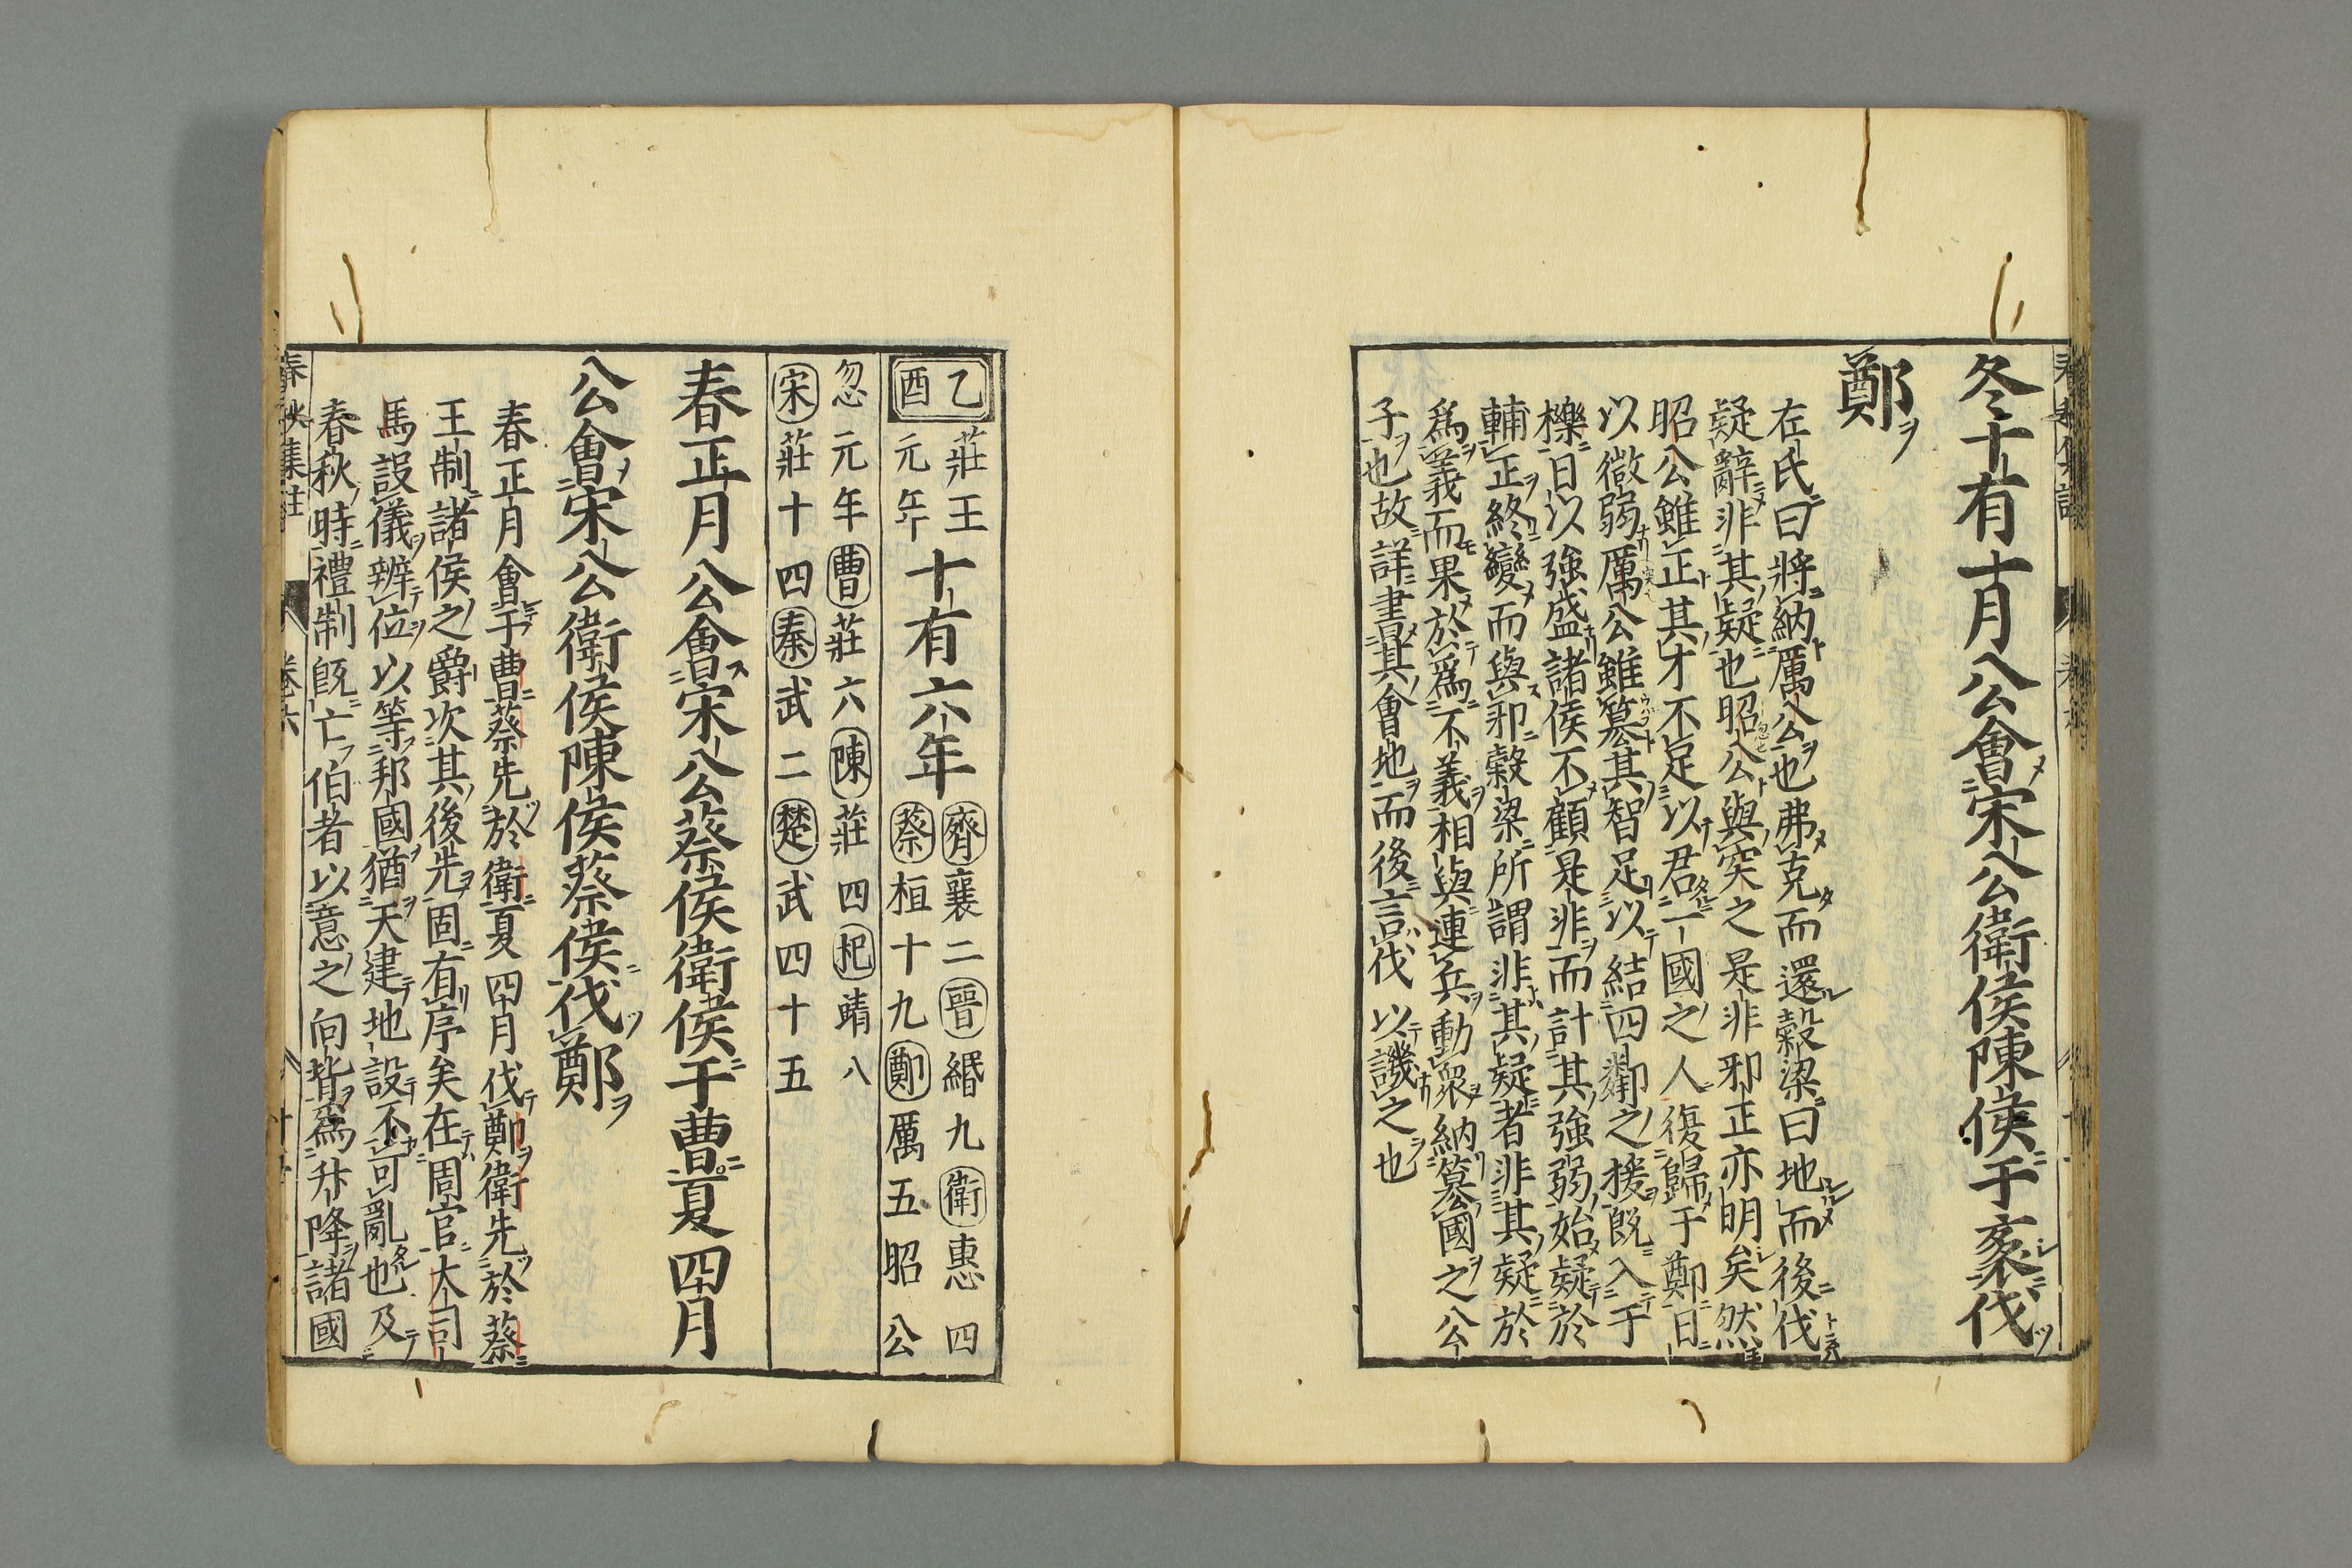 冬十有一月公會宋公衛侯陳侯于袲伐
鄭
左氏曰將納厲公也弗克而還穀梁曰地而後伐
疑辭非其疑也昭公與突之是非邪正亦明矣然
昭公雖正其才不足以君一國之人復歸于鄭日
以微弱厲公雖簒其智足以結四鄰之援既入于
櫟日以強盛諸侯不顧是非而計其強弱始疑於
輔正終變而與邪穀梁所謂非其疑者非其疑於
爲義而果於爲不義相與連兵動衆納簒國之公
子也故詳書其會地而後言伐以譏之也
乙酉
莊王元年
十有六年
齊襄二晉緡九衛惠四
蔡桓十九鄭厲五昭公
忽元年曹莊六陳莊四杞靖八
宋莊十四秦武二楚武四十五
春正月公會宋公蔡侯衛侯于曹夏四月
公會宋公衛侯陳侯蔡侯伐鄭
春正月會于曹蔡先於衛夏四月伐鄭衛先於蔡
王制諸侯之爵次其後先固有序矣在周官大司
馬設儀辨位以等邦國猶天建地設不可亂也及
春秋時禮制既亡伯者以意之向背爲升降諸國
春秋集註 卷六